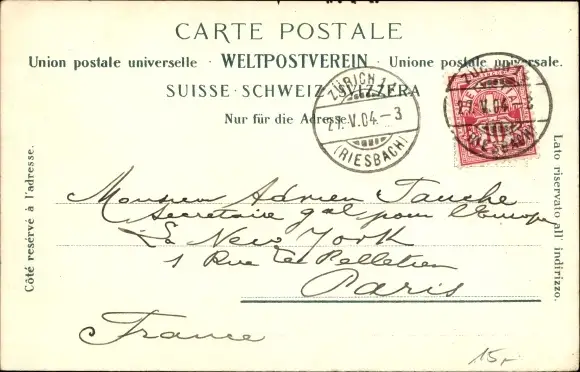 CARTE POSTALE
Union postale universelle · WELTPOSTVEREIN · Unione postale universale.
SUISSE · SCHWEIZ · SVIZZERA
Nur für die Adresse.
ZÜRICH
27.V.04.-3
(RIESBACH)
ZÜRICH
27.V.04.-3
(RIESBACH)
10
Côté resérvé à l'adresse.
Lato riservato all' indirizzo.
Monsieur Adrien Tauche
Secretaire gal pour l'Europe
New York
1 Rue Le Pelletier
Paris
France
15,-